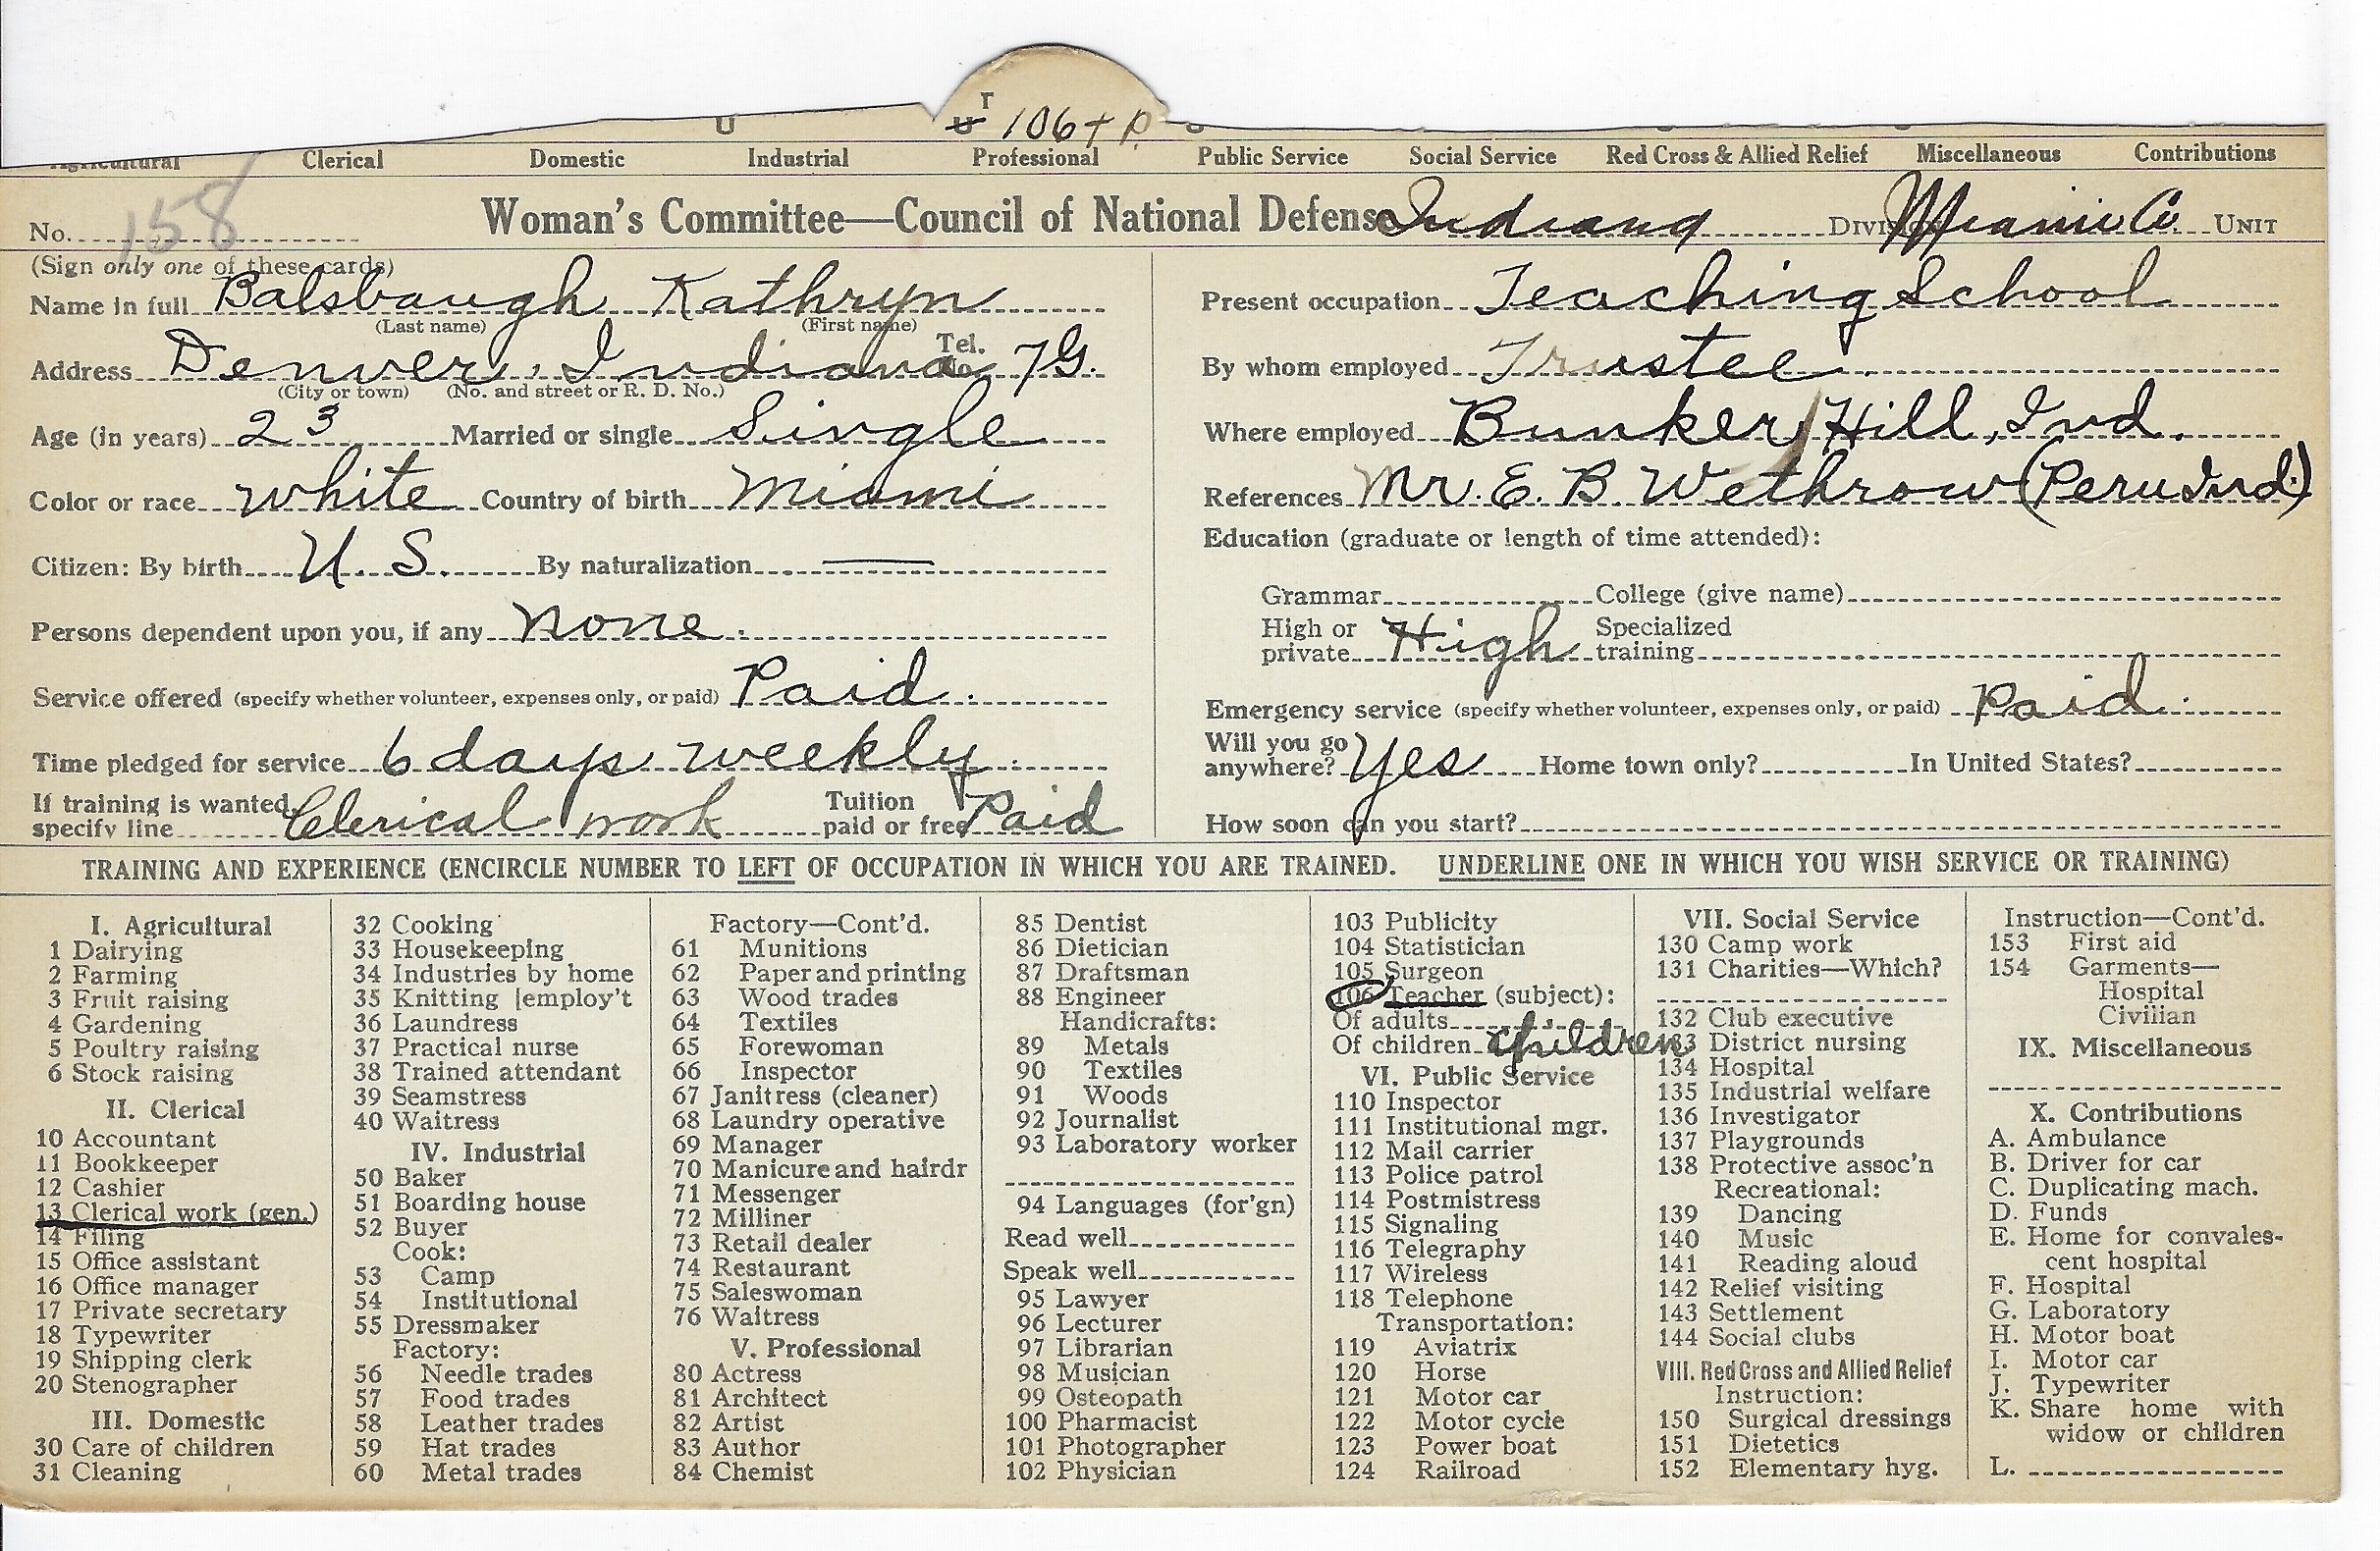 T
U U 106 + P.
Agricultural Clerical Domestic Industrial Professional Public Service Social Service Red Cross & Allied Relief Miscellaneous Contributions
No. 158 Woman's Committee—Council of National Defense Indiana Division Miami Co. Unit
(Sign only one of these cards)
Name in full Balsbaugh Kathryn
(Last name) (First name)
Address Denver, Indiana Tel. No. 7G.
(City or town) (No. and street or R. D. No.)
Age (in years) 23 Married or single Single
Color or race white Country of birth Miami
Citizen: By birth U. S. By naturalization —
Persons dependent upon you, if any None.
Service offered (specify whether volunteer, expenses only, or paid) Paid.
Time pledged for service 6 days weekly.
If training is wanted, specify line Clerical work Tuition paid or free Paid
Present occupation Teaching School
By whom employed Trustee.
Where employed Bunker Hill, Ind.
References Mr. E. B. Wethrow (Peru Ind.)
Education (graduate or length of time attended):
Grammar College (give name)
High or private High Specialized training
Emergency service (specify whether volunteer, expenses only, or paid) Paid.
Will you go anywhere? Yes Home town only? In United States?
How soon can you start?
TRAINING AND EXPERIENCE (ENCIRCLE NUMBER TO LEFT OF OCCUPATION IN WHICH YOU ARE TRAINED. UNDERLINE ONE IN WHICH YOU WISH SERVICE OR TRAINING)
I. Agricultural
1 Dairying
2 Farming
3 Fruit raising
4 Gardening
5 Poultry raising
6 Stock raising
II. Clerical
10 Accountant
11 Bookkeeper
12 Cashier
13 Clerical work (gen.)
14 Filing
15 Office assistant
16 Office manager
17 Private secretary
18 Typewriter
19 Shipping clerk
20 Stenographer
III. Domestic
30 Care of children
31 Cleaning
32 Cooking
33 Housekeeping
34 Industries by home
35 Knitting [employ't
36 Laundress
37 Practical nurse
38 Trained attendant
39 Seamstress
40 Waitress
IV. Industrial
50 Baker
51 Boarding house
52 Buyer
Cook:
53 Camp
54 Institutional
55 Dressmaker
Factory:
56 Needle trades
57 Food trades
58 Leather trades
59 Hat trades
60 Metal trades
Factory—Cont'd.
61 Munitions
62 Paper and printing
63 Wood trades
64 Textiles
65 Forewoman
66 Inspector
67 Janitress (cleaner)
68 Laundry operative
69 Manager
70 Manicure and hairdr
71 Messenger
72 Milliner
73 Retail dealer
74 Restaurant
75 Saleswoman
76 Waitress
V. Professional
80 Actress
81 Architect
82 Artist
83 Author
84 Chemist
85 Dentist
86 Dietician
87 Draftsman
88 Engineer
Handicrafts:
89 Metals
90 Textiles
91 Woods
92 Journalist
93 Laboratory worker
94 Languages (for'gn)
Read well
Speak well
95 Lawyer
96 Lecturer
97 Librarian
98 Musician
99 Osteopath
100 Pharmacist
101 Photographer
102 Physician
103 Publicity
104 Statistician
105 Surgeon
106 Teacher (subject):
Of adults
Of children children
VI. Public Service
110 Inspector
111 Institutional mgr.
112 Mail carrier
113 Police patrol
114 Postmistress
115 Signaling
116 Telegraphy
117 Wireless
118 Telephone
Transportation:
119 Aviatrix
120 Horse
121 Motor car
122 Motor cycle
123 Power boat
124 Railroad
VII. Social Service
130 Camp work
131 Charities—Which?
132 Club executive
133 District nursing
134 Hospital
135 Industrial welfare
136 Investigator
137 Playgrounds
138 Protective assoc'n
Recreational:
139 Dancing
140 Music
141 Reading aloud
142 Relief visiting
143 Settlement
144 Social clubs
VIII. Red Cross and Allied Relief
Instruction:
150 Surgical dressings
151 Dietetics
152 Elementary hyg.
Instruction—Cont'd.
153 First aid
154 Garments—
Hospital
Civilian
IX. Miscellaneous
X. Contributions
A. Ambulance
B. Driver for car
C. Duplicating mach.
D. Funds
E. Home for convales-
cent hospital
F. Hospital
G. Laboratory
H. Motor boat
I. Motor car
J. Typewriter
K. Share home with
widow or children
L.